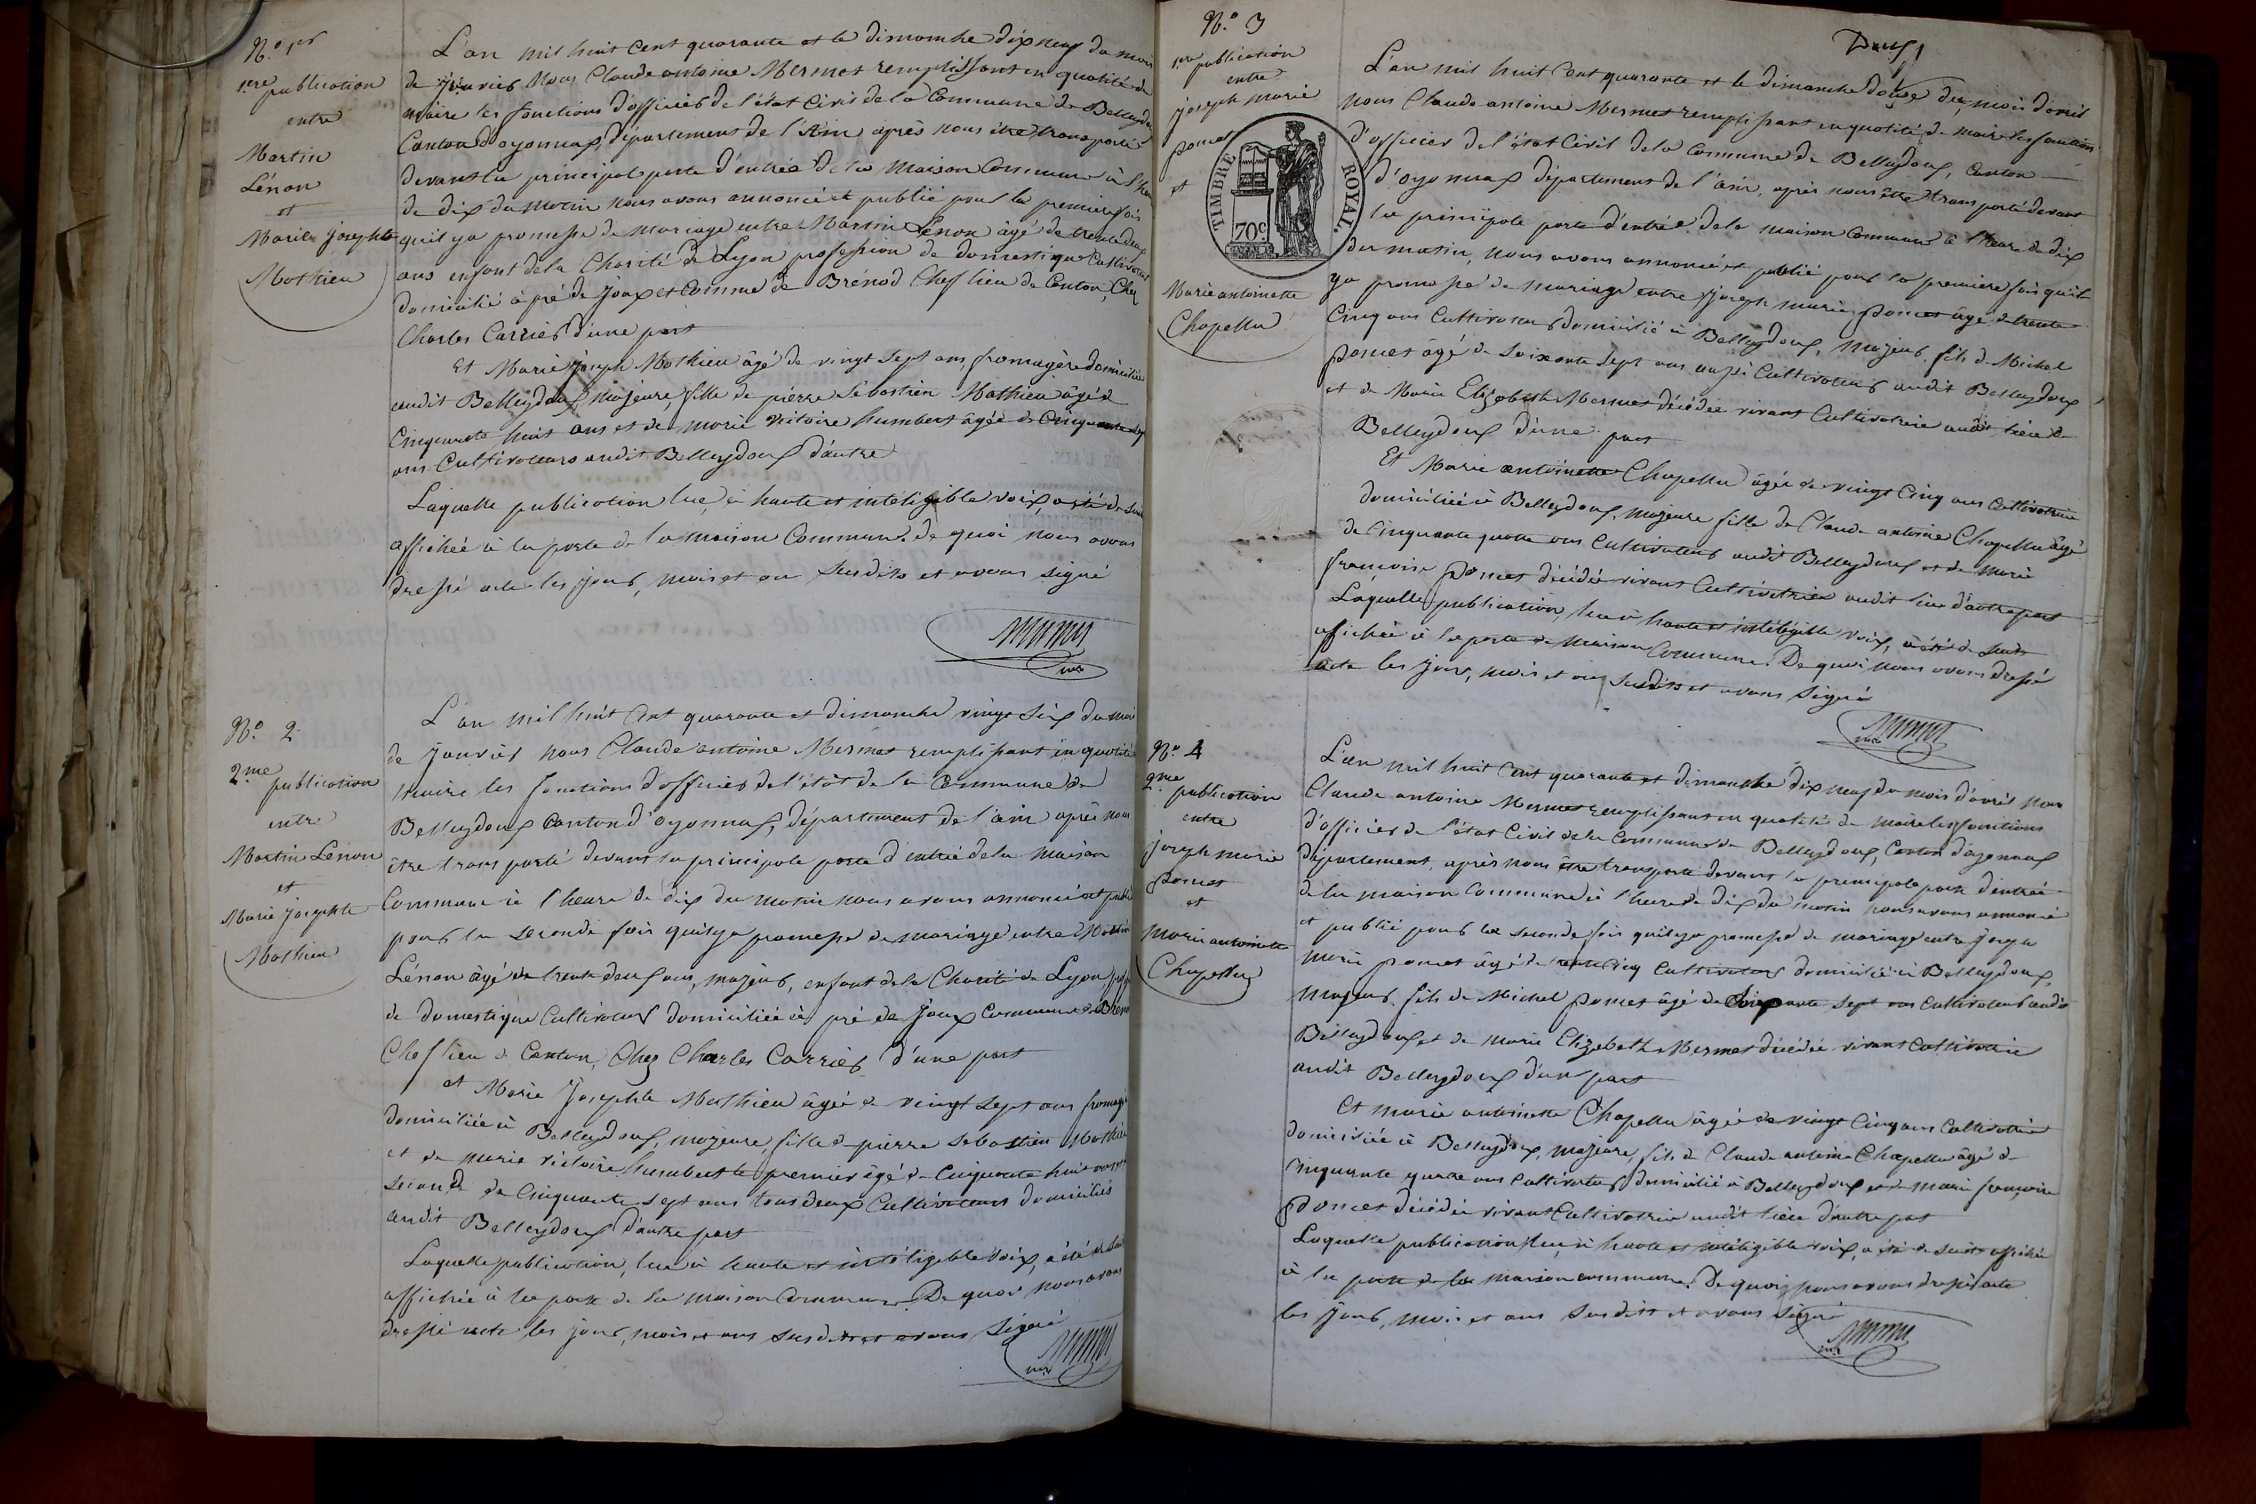 N.o 1er
1ere publication
entre
Martin
Lénon
et
Marie Josephte
Mathieu
L'an mil huit cent quarante et le dimanche dix neuf du mois
de Janvier Nous Claude antoine Mermet remplissant en qualité de
maire les fonctions d'officier de l'état Civil de la Commune de Belleydoux
Canton d'oyonnax, département de l'Ain après nous être transporté
devant la principal porte d'entrée de la Maison Commune à l'heure
de dix du matin nous avons annoncé et publié pour la première fois
qu'il y a promesse de mariage entre Martin Lénon âgé de trente deux
ans enfant de la Charité de Lyon profession de domestique Cultivateur
domicilié à pré de Joux et Comme de Brénod Chef lieu de Canton, Chez
Charles Carrier d'une part
Et Marie Joseph Mathieu âgé de vingt sept ans, fromagère domiciliée
audit Belleydoux, Majeure, fille de pierre Sébastien Mathieu âgé de
Cinquante huit ans et de marie victoire humbert âgée de Cinquante sept
ans Cultivateurs audit Belleydoux d'autre
Laquelle publication lue, à haute et inteligible voix, a été de suite
affichée à la porte de la maison Commune. de quoi nous avons
dressé acte les jour, mois et an susdits et avons signé
Mermet
mre
N.o 2
2.me publication
entre
Martin Lénon
et
Marie Josephte
Mathieu
L'an mil huit Cent quarante et dimanche vingt six du mois
de Janvier nous Claude antoine Mermet remplissant en qualité
maire les fonctions d'officier de l'état de la Commune de
Belleydoux Canton d'oyonnax, département de l'ain après nous
être transporté devant la principale porte d'entrée de la Maison
Commune à l'heure de dix du matin nous avons annoncé et publié
pour la seconde fois qu'il y a promesse de mariage entre Martin
Lénon âgé de trente deux ans, majeur, enfant de la Charité de Lyon,
de domestique Cultivateur domiciliée à pré de Joux Commune de Brénod
Chef lieu de Canton, Chez Charles Carrier d'une part
et Marie Josephte Mathieu âgée de vingt sept ans fromagère
domiciliée à Belleydoux, majeure, fille de pierre Sebastien Mathieu
et de marie victoire humbert le premier âgé de Cinquante huit
seconde de Cinquante sept ans tous deux Cultivateurs domiciliés
audit Belleydoux d'autre part
Laquelle publication, lue à haute et intéligible voix, a été de suite
affichée à la porte de la maison Commune. De quoi nous avons
dressé acte les jour, mois et ans susdits et avons signé
Mermet
mre
Deux
N.o 3
1.re publication
entre
joseph marie
poncet
et
TIMBRE ROYAL.
70c
Marie antoinette
Chapellu
L'an mil huit Cent quarante et le dimanche douze du mois d'avril
nous Claude antoine Mermet remplissant en qualité de maire les fonctions
d'officier de l'état Civil de la Commune de Belleydoux, Canton
d'oyonnax département de l'ain, après nous être transporté devant
la principale porte d'entrée de la maison Commune à l'heure de dix
du matin, nous avons annoncé et publié pour la première fois qu'il
y a promesse de mariage entre Joseph marie poncet âgé de trente
Cinq ans Cultivateur domicilié à Belleydoux, Majeur, fils de Michel
poncet âgé de soixante sept ans aussi Cultivateur audit Belleydoux
et de Marie Elizabeth Mermet décédée vivant Cultivatrice audit lieu de
Belleydoux d'une part
Et Marie antoinette Chapellu âgée de vingt Cinq ans Cultivatrice
domiciliée à Belleydoux, Majeure fille de Claude antoine Chapellu âgé
de Cinquante quatre ans Cultivateur audit Belleydoux et de marie
françoise poncet décédée vivant Cultivatrice audit lieu d'autre part
Laquelle publication, lue à haute et intéligible voix, a été de suite
affichée à la porte de maison Commune. De quoi nous avons dressé
acte les jour, mois et an susdits et avons signé
Mermet
mre
N.o 4
2.me publication
entre
joseph marie
poncet
et
marie antoinette
Chapellu
L'an mil huit Cent quarante et dimanche dix neuf du mois d'avril nous
Claude antoine Mermet remplissant en qualité de maire les fonctions
d'officier de l'état Civil de la Commune de Belleydoux, Canton d'oyonnax
département, après nous être transporté devant la principale porte d'entrée
de la maison Commune à l'heure de dix du matin nous avons annoncé
et publié pour la seconde fois qu'il y a promesse de mariage entre joseph
marie poncet âgé de trente cinq Cultivateur domicilié à Belleydoux,
Majeur, fils de Michel poncet âgé de Soixante sept ans Cultivateur audit
Belleydoux et de marie Elizabeth Mermet décédée vivant Cultivatrice
audit Belleydoux d'une part
Et marie antoinette Chapellu âgée de vingt Cinq ans Cultivatrice
domiciliée à Belleydoux, majeure, fils de Claude antoine Chapellu âgé de
Cinquante quatre ans Cultivateur domicilié à Belleydoux et de marie françoise
poncet décédée vivant Cultivatrice audit lieu d'autre part
Laquelle publication, lue, à haute et intéligible voix, a été de suite affichée
à la porte de la maison commune. De quoi, nous avons dressé acte
les jour, mois et ans susdits et avons signé
Mermet
mre